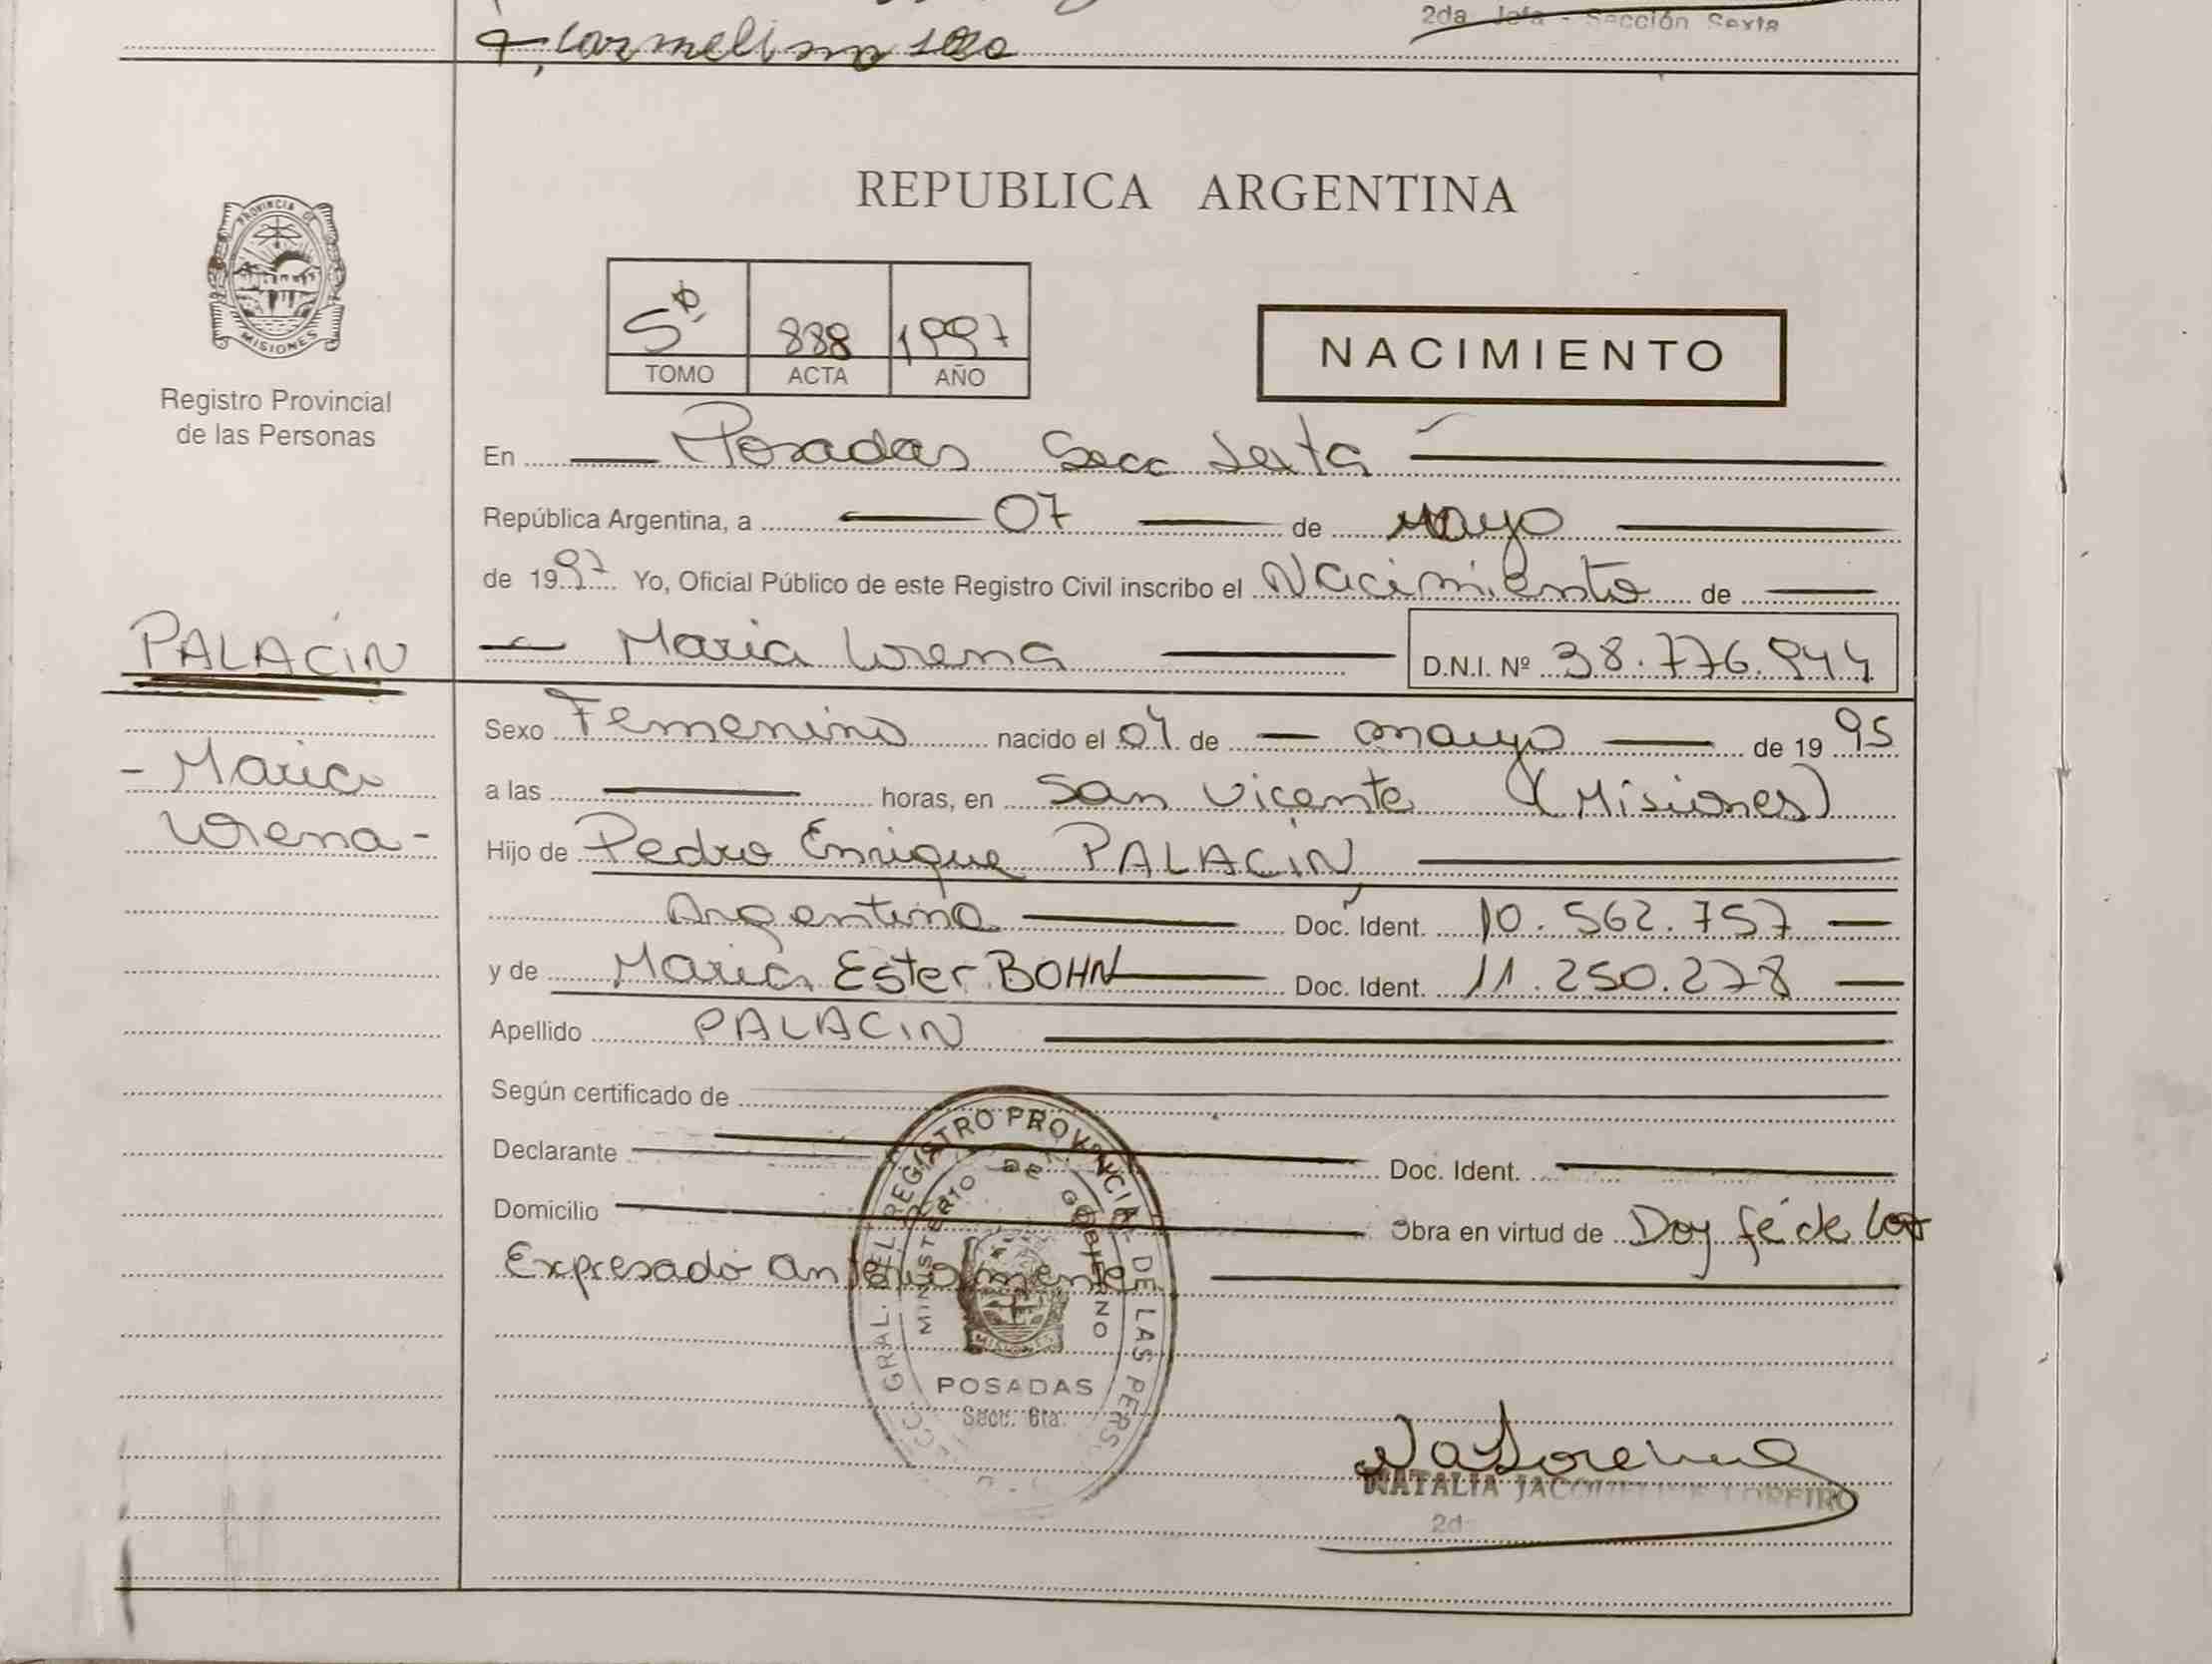 Carmelino
2da Jefa - Sección Sexta
PROVINCIA DE
MISIONES
Registro Provincial
de las Personas
REPUBLICA ARGENTINA
5º 888 1997
TOMO ACTA AÑO
NACIMIENTO
En Posadas Secc Sexta
República Argentina, a 07 de Mayo
de 1997 Yo, Oficial Público de este Registro Civil inscribo el Nacimiento de
PALACIN
Maria Lorena D.N.I. Nº 38.776.944
Sexo Femenino nacido el 04 de mayo de 1995
- Maria
Lorena -
a las horas, en San Vicente (Misiones)
Hijo de Pedro Enrique PALACIN,
Argentino Doc. Ident. 10.562.757
y de Maria Ester BOHN Doc. Ident. 11.250.278
Apellido PALACIN
Según certificado de
Declarante Doc. Ident.
Domicilio Obra en virtud de Doy fé de lo
Expresado anteriormente
GRAL. DEL REGISTRO PROVINCIAL DE LAS PERS
MINISTERIO DE GOBIERNO
MISIONES
POSADAS
Secc. 6ta.
NATALIA JACQUELINE LOREIRO
2d